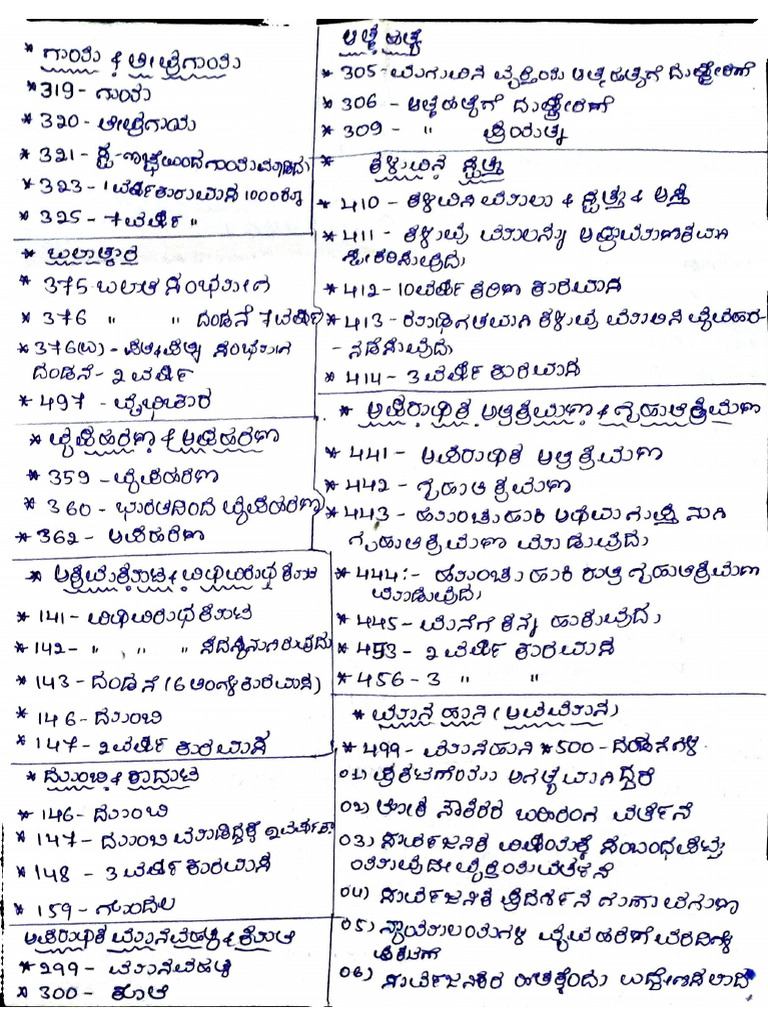 * ಗಾಯ & ತೀವ್ರಗಾಯ
* 319 - ಗಾಯ
* 320 - ತೀವ್ರಗಾಯ
* 321 - ಸ್ವ-ಇಚ್ಛೆಯಿಂದ ಗಾಯಮಾಡಿದು
* 323 - 1 ವರ್ಷ ಕಾರಾವಾಸ 1000 ರೂ
* 325 - 7 ವರ್ಷ "
* ಬಲಾತ್ಕಾರ
* 375 - ಬಲಾತ ಸಂಭೋಗ
* 376 " " ದಂಡನೆ 7 ವರ್ಷ
* 376(ಬ) - ಪತಿ&ಪತ್ನಿ ಸಂಭೋಗ
ದಂಡನೆ - 2 ವರ್ಷ
* 497 - ವ್ಯಭಿಚಾರ
* ವ್ಯಪಹರಣ & ಅಪಹರಣ
* 359 - ವ್ಯಪಹರಣ
* 360 - ಭಾರತದಿಂದ ವ್ಯಪಹರಣ
* 362 - ಅಪಹರಣ
* ಅಕ್ರಮಕೂಟ & ವಿಧಿವಿರುಧ ಕೂಟ
* 141 - ವಿಧಿವಿರುಧ ಕೂಟ
* 142 - " " " ಸದಸ್ಯನಾಗಿರುವುದು
* 143 - ದಂಡನೆ (6 ತಿಂಗಳ ಕಾರವಾಸ)
* 146 - ದೊಂಬಿ
* 147 - 2 ವರ್ಷ ಕಾರವಾಸ
* ದೊಂಬಿ & ಕಾದಾಟ
* 146 - ದೊಂಬಿ
* 147 - ದೊಂಬಿ ಮಾಡಿದ್ದಕ್ಕೆ 2 ವರ್ಷ ಕಾ
* 148 - 3 ವರ್ಷ ಕಾರವಾಸ
* 159 - ಗೊಂದಲ
ಅಪರಾಧಿಕ ಮಾನವಹತ್ಯೆ & ಕೊಲೆ
* 299 - ಮಾನವಹತ್ಯೆ
* 300 - ಕೊಲೆ
ಆತ್ಮಹತ್ಯೆ
* 305 - ಮಗುವಿನ ವ್ಯಕ್ತಿಯ ಆತ್ಮಹತ್ಯೆಗೆ ದುಷ್ಪ್ರೇರಣೆ
* 306 - ಆತ್ಮಹತ್ಯೆಗೆ ದುಷ್ಪ್ರೇರಣೆ
* 309 - " ಪ್ರಯತ್ನ
* ಕಳ್ಳುವಿನ ಸ್ವತ್ತು
* 410 - ಕಳ್ಳವಿನ ಮಾಲು & ಸ್ವತ್ತು & ಆಸ್ತಿ
* 411 - ಕಳ್ಳವು ಮಾಲನ್ನು ಅಪ್ರಾಮಾಣಿಕವಾಗಿ
ಸ್ವೀಕರಿಸುವುದು
* 412 - 10 ವರ್ಷ ಕಠಿಣ ಕಾರವಾಸ
* 413 - ರೂಢಿಗತವಾಗಿ ಕಳ್ಳವು ಮಾಲಿನ ವ್ಯವಹಾರ
- ನಡೆಸುವುದು
* 414 - 3 ವರ್ಷ ಕಾರವಾಸ
* ಅಪರಾಧಿಕ ಅತಿಕ್ರಮಣ & ಗೃಹಾತಿಕ್ರಮಣ
* 441 - ಅಪರಾಧಿಕ ಅತಿಕ್ರಮಣ
* 442 - ಗೃಹಾತಿಕ್ರಮಣ
* 443 - ಹೊಂಚುಹಾಕಿ ಅಥವಾ ಗುಪ್ತನಾಗಿ
ಗೃಹಾತಿಕ್ರಮಣ ಮಾಡುವುದು
* 444 :- ಹೊಂಚು ಹಾಕಿ ರಾತ್ರಿ ಗೃಹಾತಿಕ್ರಮಣ
ಮಾಡುವುದು
* 445 - ಮನೆಗೆ ಕನ್ನ ಹಾಕುವುದು
* 453 - 2 ವರ್ಷ ಕಾರವಾಸ
* 456 - 3 " "
* ಮಾನ ಹಾನಿ (ಅವಮಾನ)
* 499 - ಮಾನಹಾನಿ * 500 - ದಂಡನೆಗಳು
01) ಪ್ರಕಟಗೊಂಡು ಅಗತ್ಯವಾಗಿದ್ದರೆ
02) ಲೋಕ ನೌಕರರ ಬಹಿರಂಗ ವರ್ತನೆ
03) ಸಾರ್ವಜನಿಕ ವಿಷಯಕ್ಕೆ ಸಂಬಂಧಪಟ್ಟ
ಯಾವುದೇ ವ್ಯಕ್ತಿಯ ವರ್ತನೆ
04) ಸಾರ್ವಜನಿಕ ಪ್ರದರ್ಶನ ಗುಣಾವಗುಣ
05) ನ್ಯಾಯಾಲಯಗಳ ವ್ಯವಹರಣೆ ವರದಿಗಳ
ಪ್ರಕಟಣೆ
06) ಸಾರ್ವಜನಿಕರ ಹಿತಕ್ಕೆಂದು ಉದ್ದೇಶಿಸಲಾದ